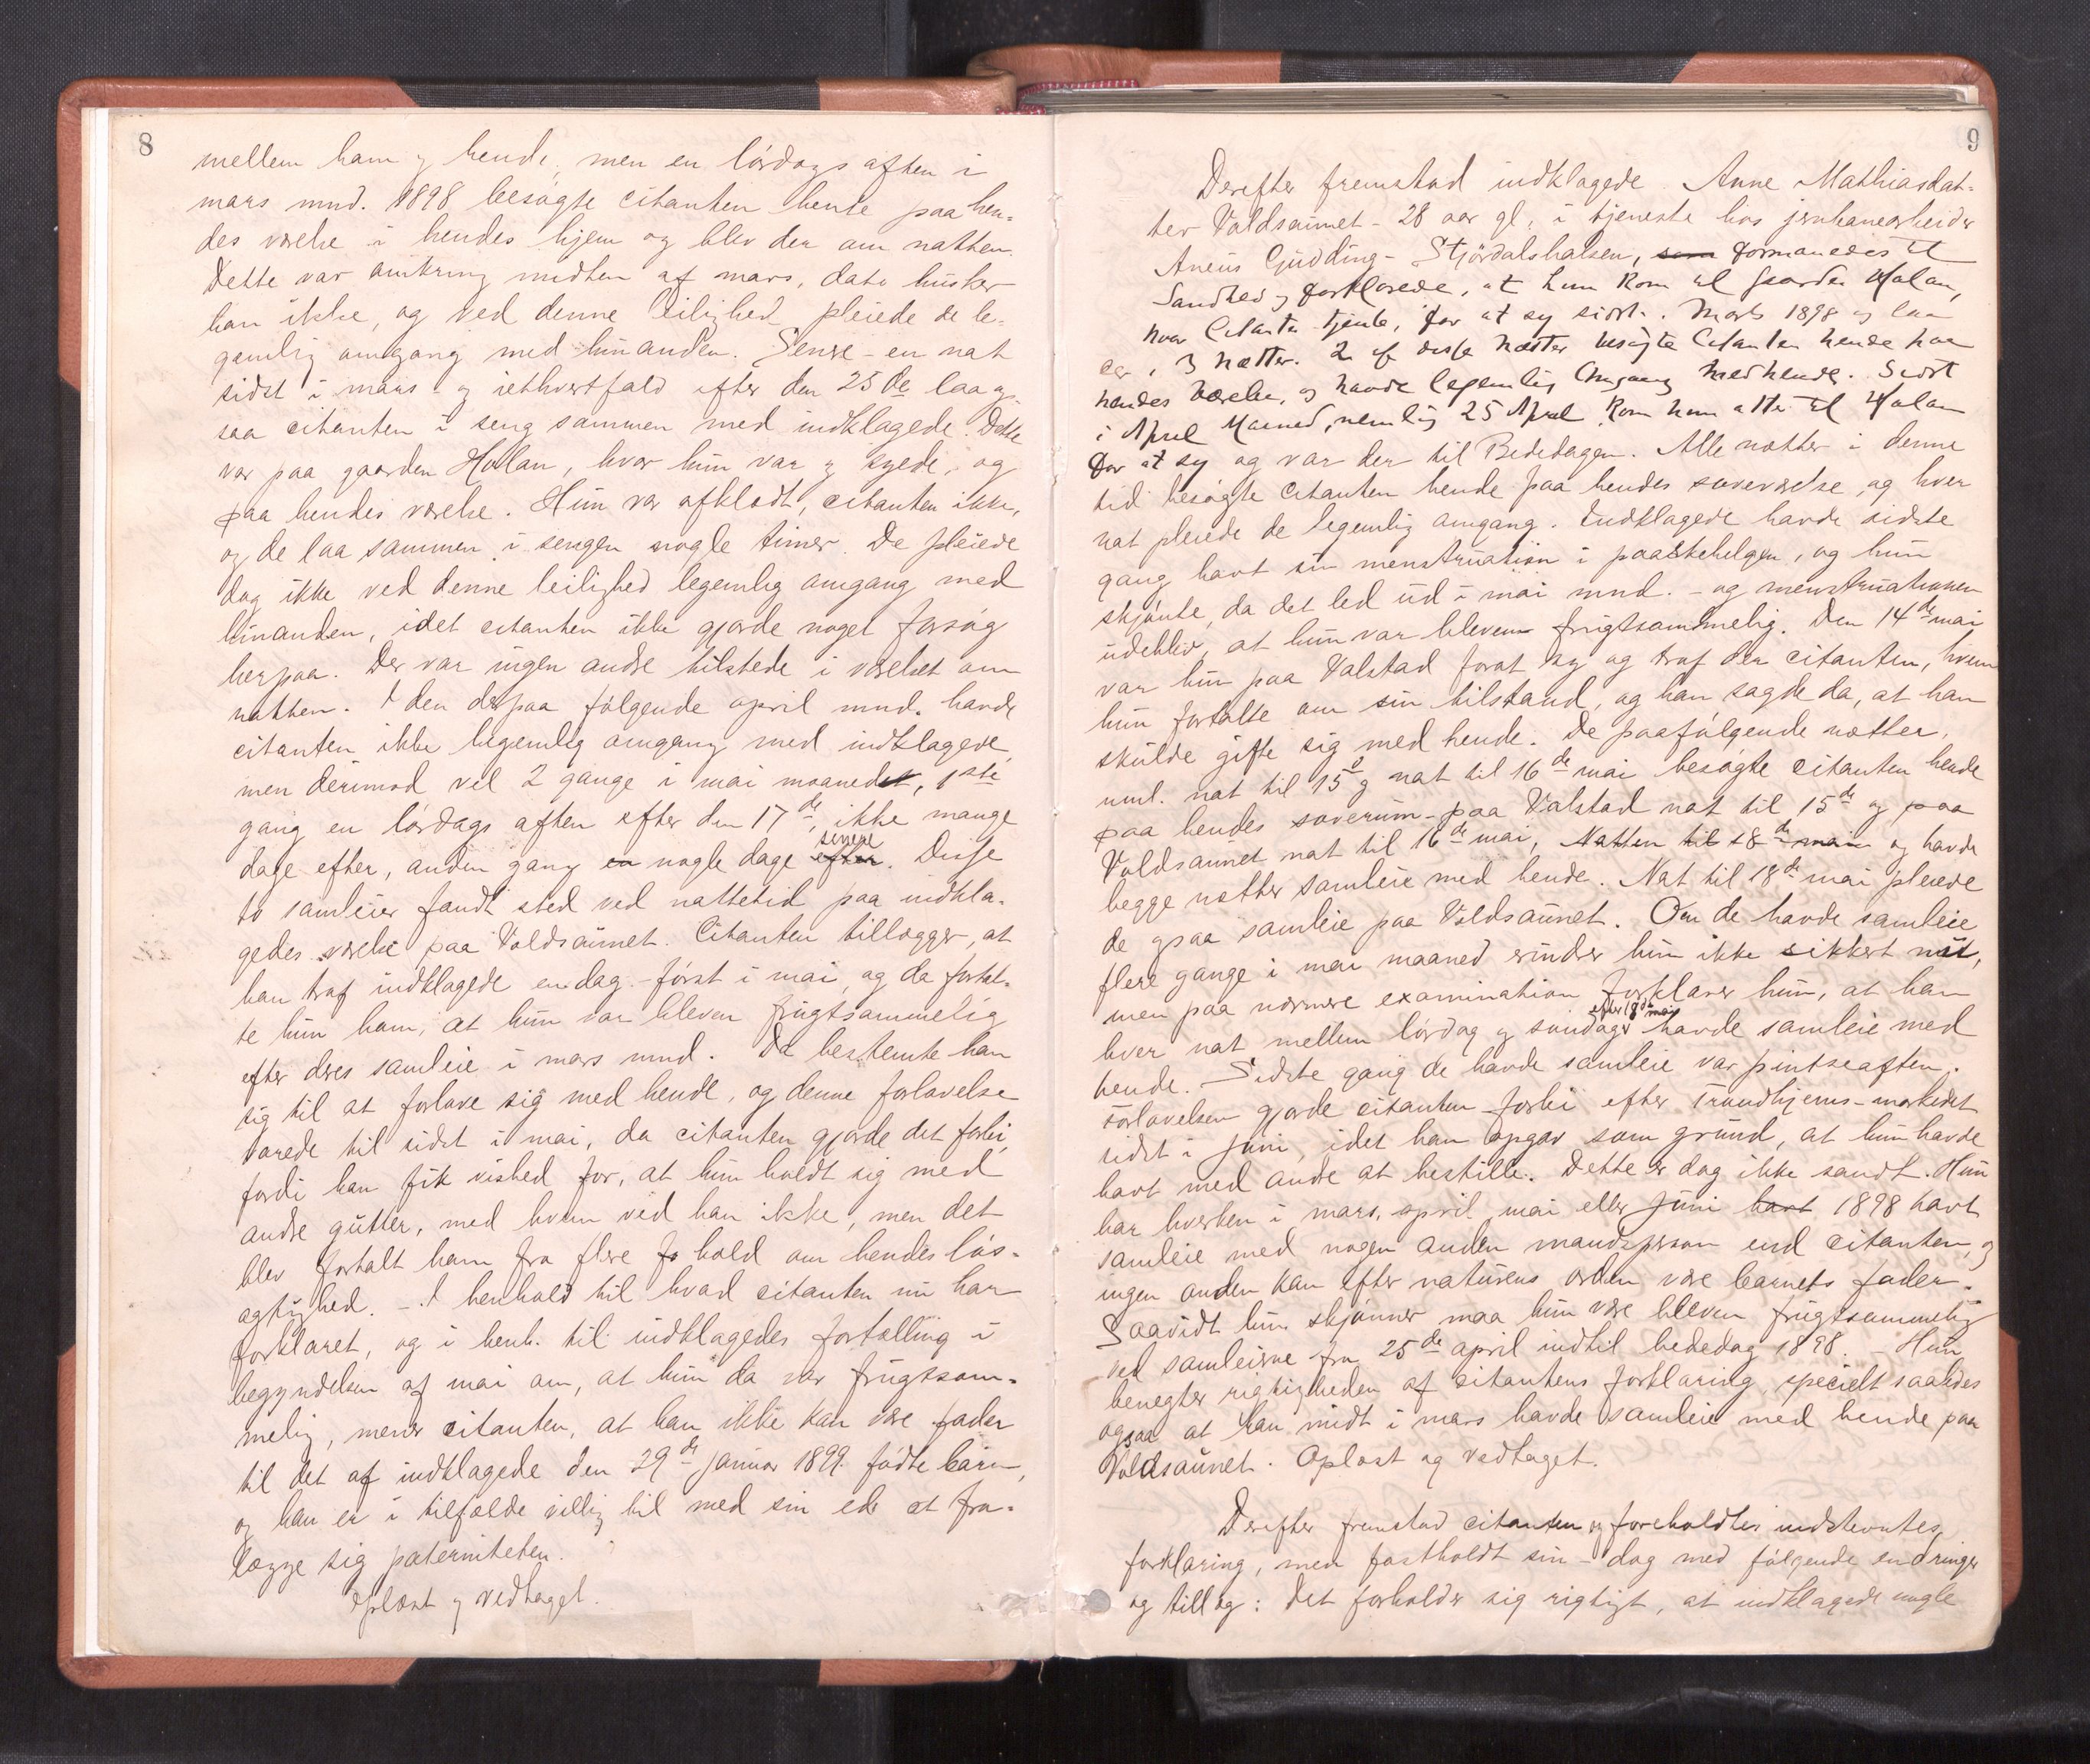 8
mellem ham og hende, men en lørdags aften i
mars mnd. 1898 besøgte citanten hende paa hen-
des værelse i hendes hjem og blev der om natten.
Dette var omkring midten af mars, dato husker
han ikke, og ved denne leilighed pleiede de le-
gemlig omgang med hinanden. Senere - en nat
sidst i mars - og iethvertfald efter den 25de laa og-
saa citanten i seng sammen med indklagede. Dette
var paa gaarden Holan, hvor hun var og syede, og
paa hendes værelse. Hun var afklædt, citanten ikke,
og de laa sammen i sengen nogle timer. De pleiede
dog ikke ved denne leilighed legemlig omgang med
hinanden, idet citanten ikke gjorde noget forsøg
herpaa. Der var ingen andre tilstede i værelset om
natten. I den derpaa følgende april mnd. havde
citanten ikke legemlig omgang med indklagede,
men derimod vel 2 gange i mai maaned, 1ste
gang en lørdags aften efter den 17de, ikke mange
dage efter, anden gang en nogle dage efter senere. Disse
to samleier fandt sted ved nattetid paa indkla-
gedes værelse paa Voldsaunet. Citanten tillægger, at
han traf indklagede en dag - først i mai, og da fortal-
te hun ham, at hun var bleven frugtsommelig
efter deres samleie i mars mnd. Da bestemte han
sig til at forlove sig med hende, og denne forlovelse
varede til sidst i mai, da citanten gjorde det forbi,
fordi han fik vished for, at hun holdt sig med
andre gutter, med hvem ved han ikke, men det
blev fortalt ham fra flere hold om hendes løs-
agtighed. - I henhold til hvad citanten nu har
forklaret, og i henh. til indklagedes fortælling i
begyndelsen af mai om, at hun da var frugtsom-
melig, mener citanten, at han ikke kan være fader
til det af indklagede den 29de januar 1899 fødte barn,
og han er i tilfælde villig til med sin ed at fra-
lægge sig paterniteten.
Oplæst og vedtaget.
9
Derefter fremstod indklagede Anne Mathiasdat-
ter Voldsaunet - 28 aar gl., i tjeneste hos jernbanearbeider
Aneus Gjudding - Stjørdalshalsen, som formanedes til
Sandhed og forklarede, at hun kom til Gaarden Holan,
hvor Citanten tjente, for at sy sidst i Marts 1898 og laa
der i 3 Nætter. 2 af disse Nætter besøgte Citanten hende paa
hendes Værelse, og havde legemlig Omgang med hende. Sidst
i April Maaned, nemlig 25 April kom hun atter til Holan
for at sy og var der til Bededagen. Alle nætter i denne
tid besøgte citanten hende paa hendes soveværelse, og hver
nat pleiede de legemlig omgang. Indklagede havde sidste
gang havt sin menstruation i paaskehelgen, og hun
skjønte, da det led ud i mai mnd. - og menstruationen
udeblev, at hun var bleven frugtsommelig. Den 14de mai
var hun paa Valstad forat sy og traf der citanten, hvem
hun fortalte om sin tilstand, og han sagde da, at han
skulde gifte sig med hende. De paafølgende nætter,
nml. nat til 15 og nat til 16de mai besøgte citanten hende
paa hendes soverum - paa Valstad nat til 15de og paa
Voldsaunet nat til 16de mai, Natten til 18de mai og havde
begge nætter samleie med hende. Nat til 18de mai pleiede
de ogsaa samleie paa Voldsaunet. Om de havde samleie
flere gange i mai maaned erindrer hun ikke sikkert nu,
men paa nærmere examination forklarer hun, at han
hver nat mellem lørdag og søndag efter 18de mai havde samleie med
hende. Sidste gang de havde samleie var pintseaften.
Forlovelsen gjorde citanten forbi efter Trondhjems-markedet
sidst i juni, idet han opgav som grund, at hun havde
havt med andre at bestille. Dette er dog ikke sandt. Hun
har hverken i mars, april, mai eller juni havt 1898 havt
samleie med nogen anden mandsperson end citanten, og
ingen anden kan efter naturens orden være barnets fader.
Saavidt hun skjønner maa hun være bleven frugtsommelig
ved samleierne fra 25de april indtil bededag 1898. - Hun
benegter rigtigheden af citantens forklaring, specielt saaledes
ogsaa at han midt i mars havde samleie med hende paa
Voldsaunet. Oplæst og vedtaget.
Derefter fremstod citanten og foreholdtes indstevntes
forklaring, men fastholdt sin - dog med følgende endringer
og tillæg: Det forholder sig rigtigt, at indklagede nogle